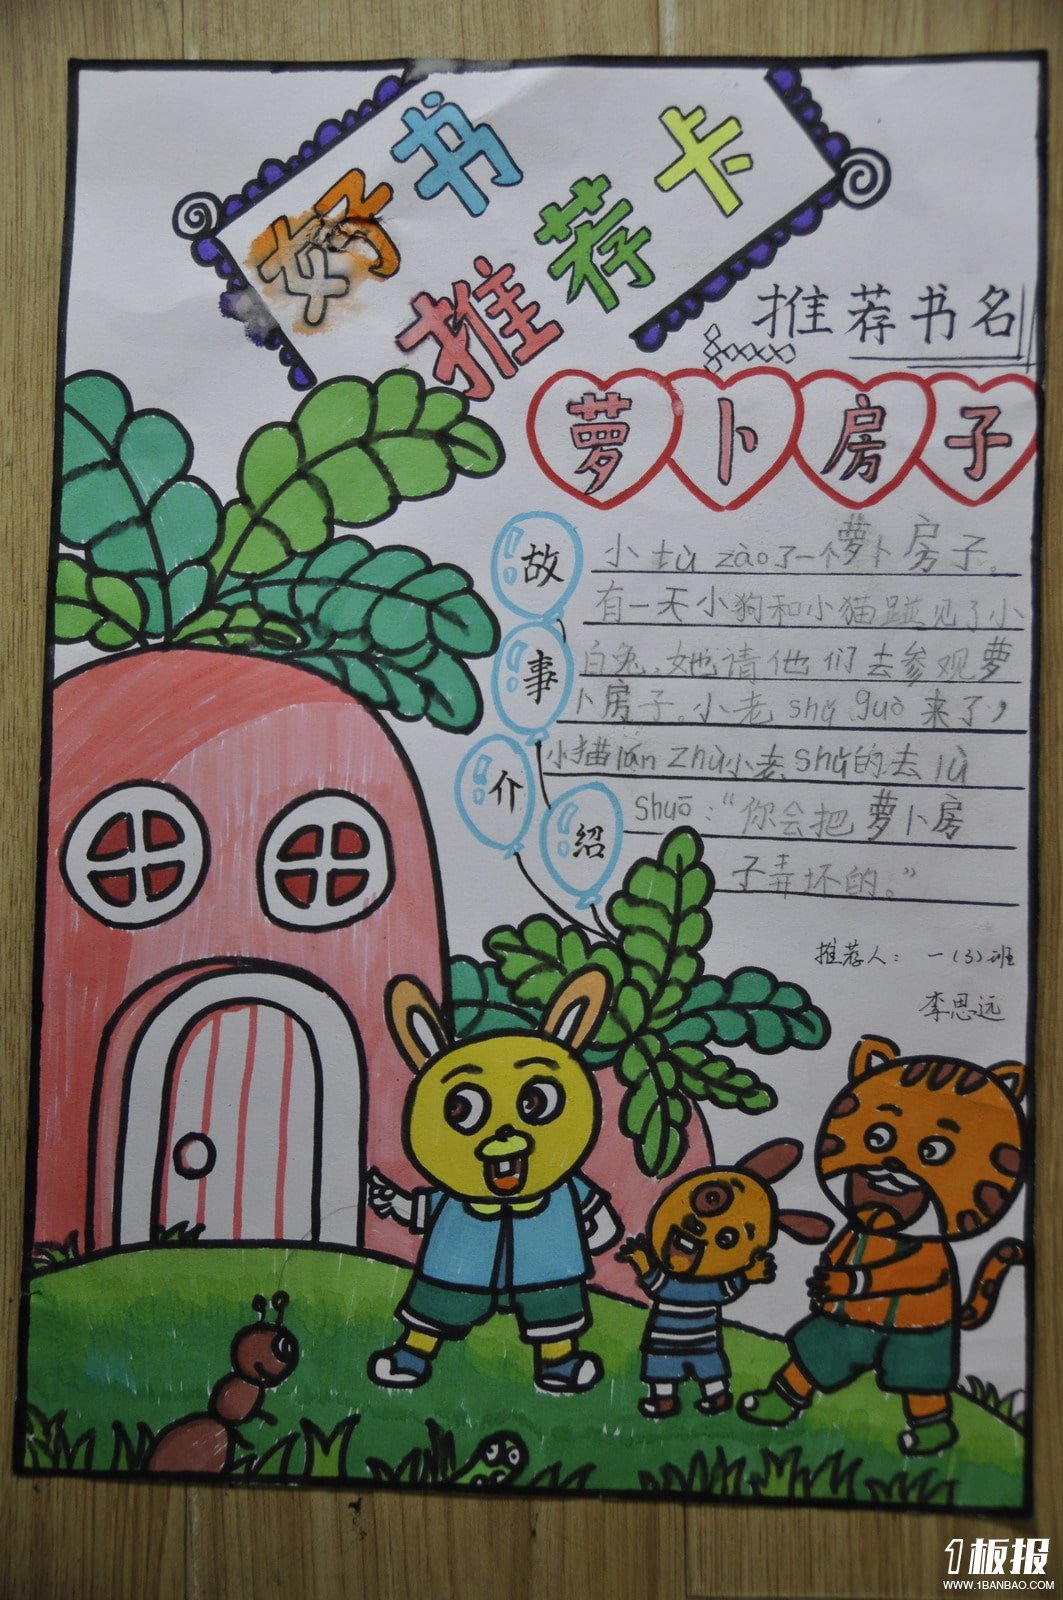 好书
推荐卡
推荐书名
萝卜房子
故事介绍
小tù zào了一个萝卜房子。
有一天小狗和小猫碰见了小
白兔,她请他们去参观萝
卜房子。小老shǔ guò来了,
小猫lán zhù小老shǔ的去lù
shuō:“你会把萝卜房
子弄坏的。”
推荐人: 一(3)班
李思远
1板报
WWW.1BANBAO.COM